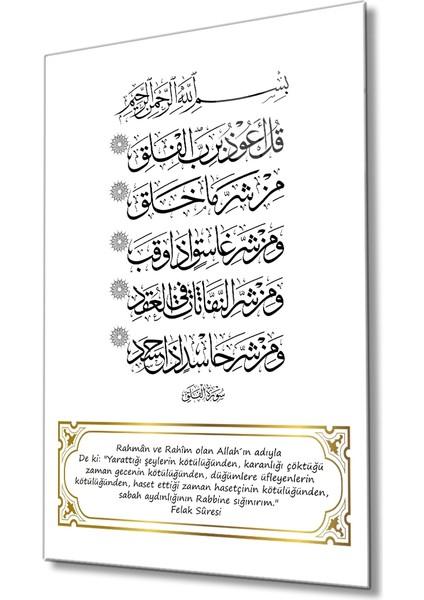 بسم الله الرحمن الرحيم
قل أعوذ برب الفلق
من شر ما خلق
ومن شر غاسق إذا وقب
ومن شر النفاثات في العقد
ومن شر حاسد إذا حسد
سورة الفلق
Rahmân ve Rahîm olan Allah´ın adıyla
De ki: "Yarattığı şeylerin kötülüğünden, karanlığı çöktüğü
zaman gecenin kötülüğünden, düğümlere üfleyenlerin
kötülüğünden, haset ettiği zaman hasetçinin kötülüğünden,
sabah aydınlığının Rabbine sığınırım."
Felak Sûresi